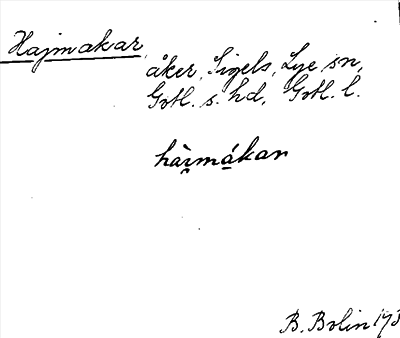 Hajmakar
åker, Sigels, Lye sn,
Gotl. s. hd, Gotl. l.
hàımákan
B. Bolin 193